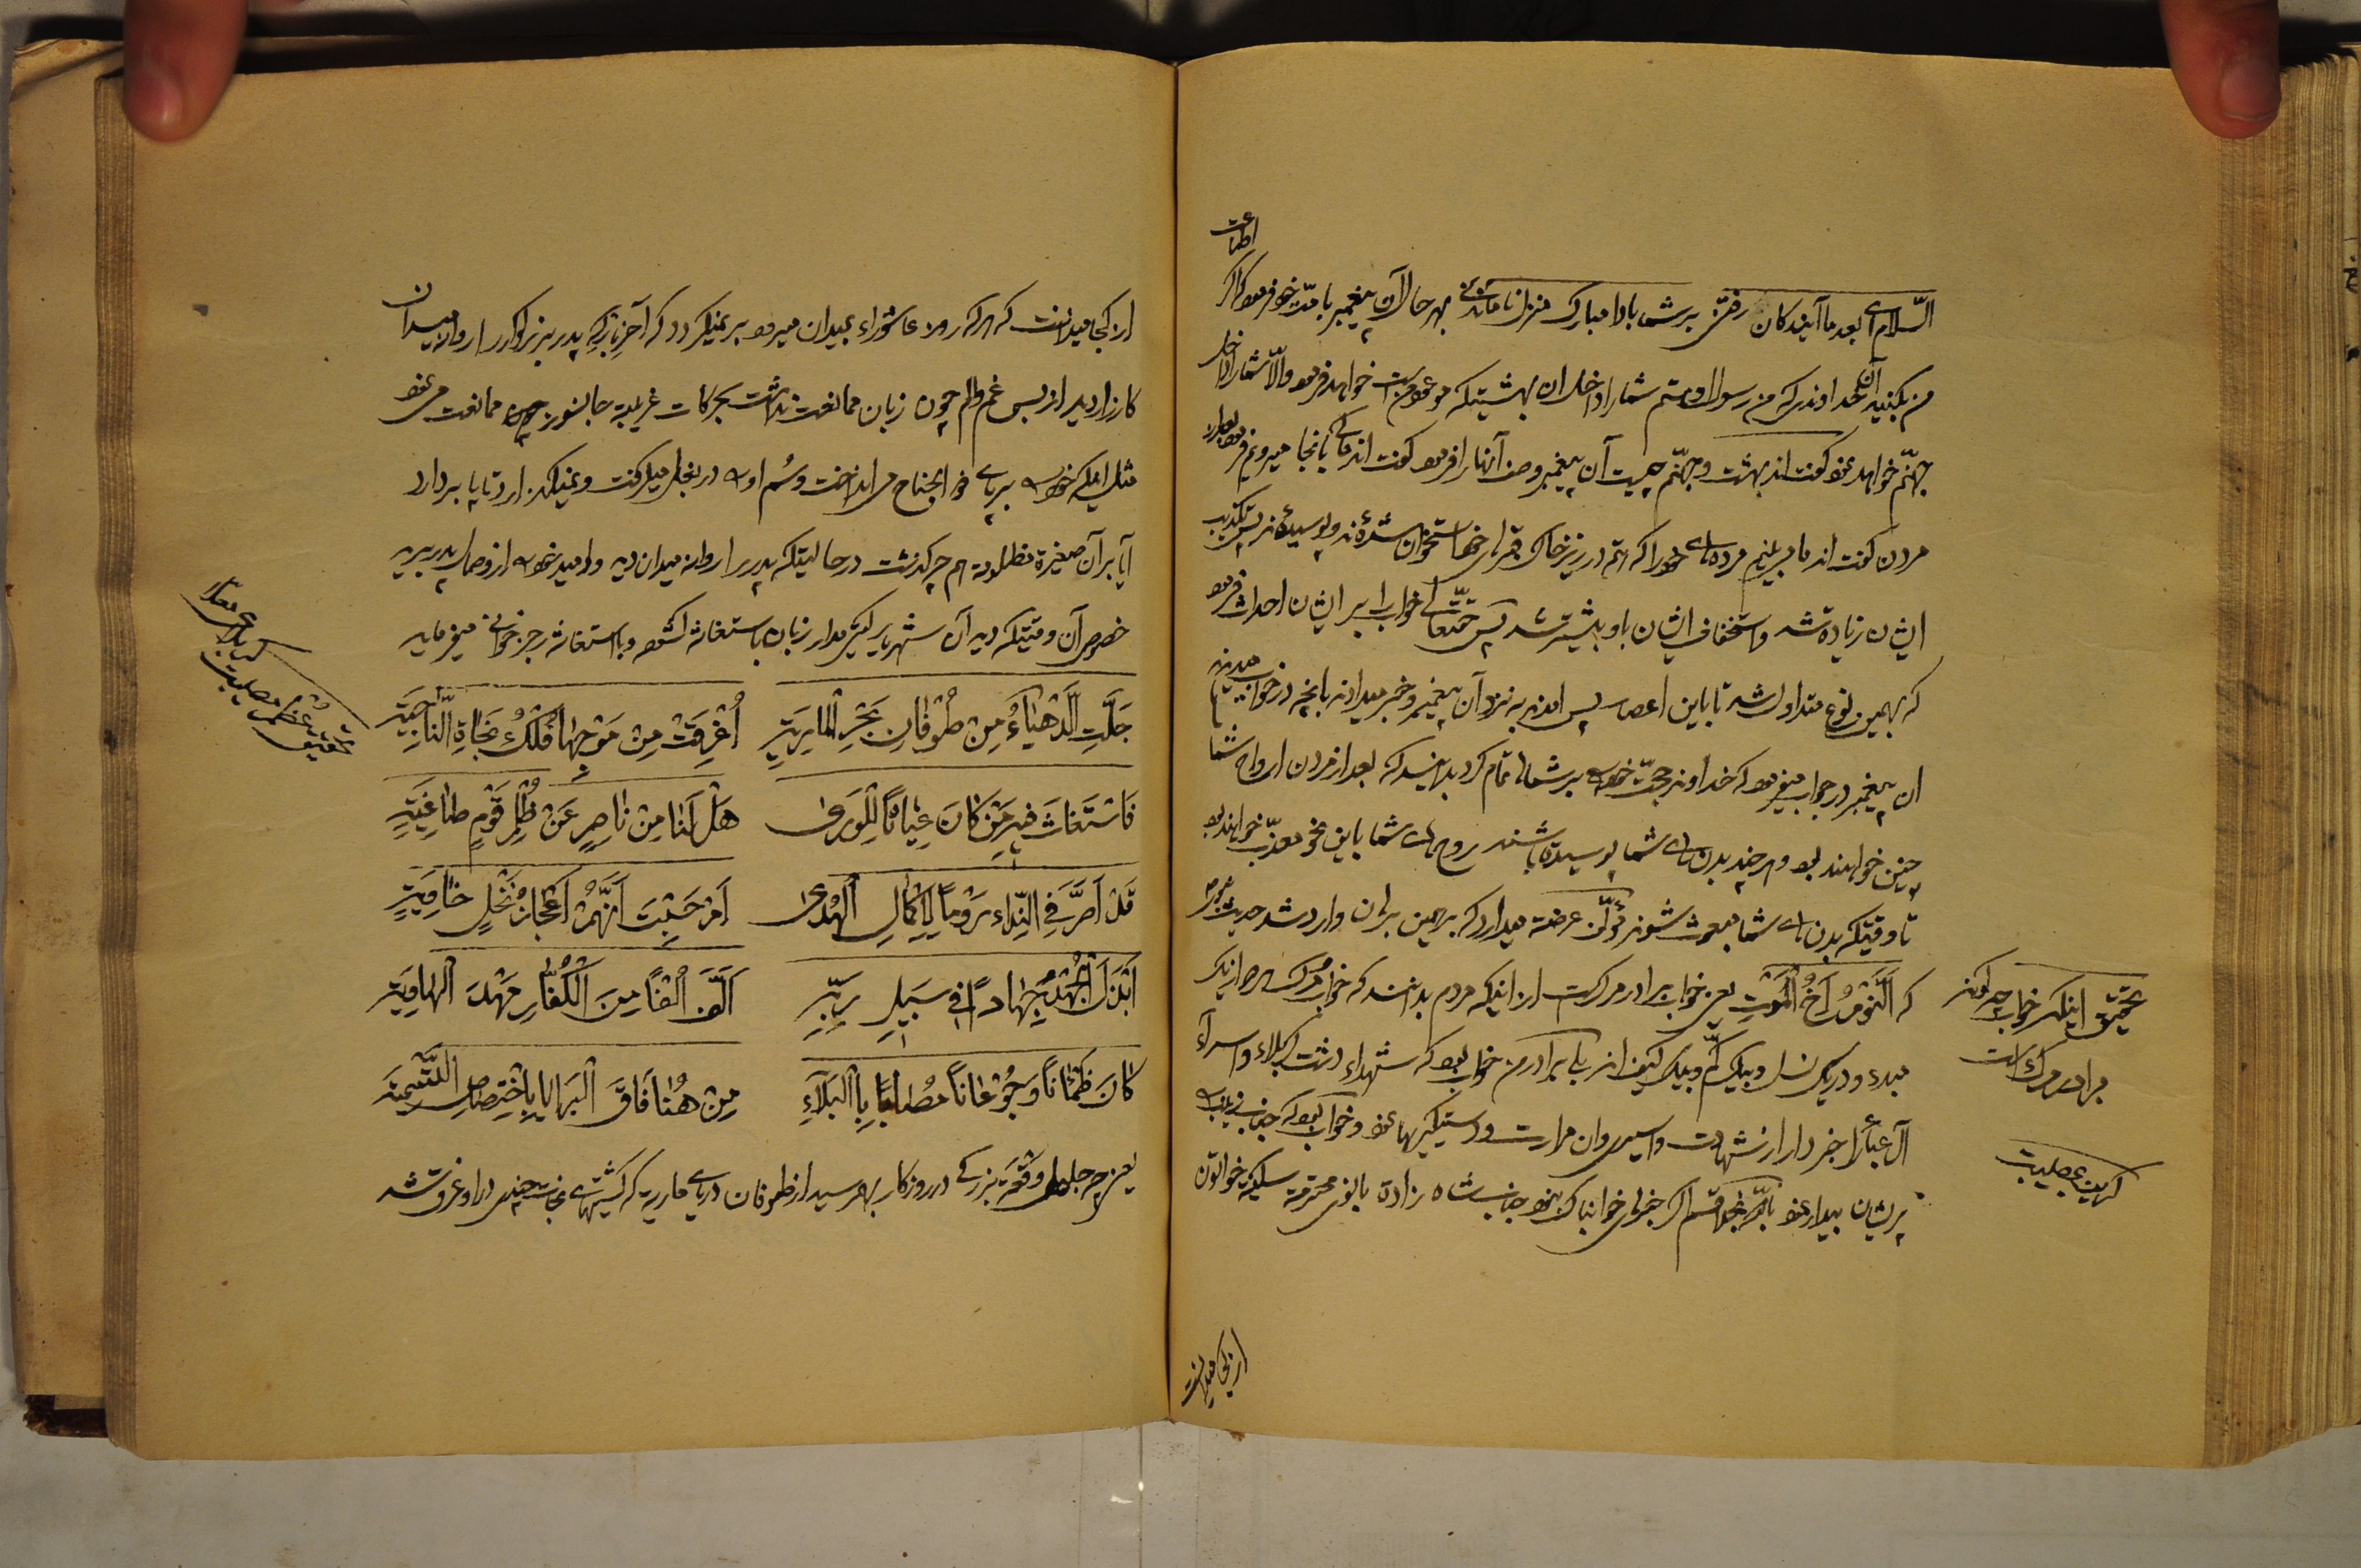 اطاعت
السّلام ای بعد ما آیندکان رفتن بر شما بادا مبارک منزل ناماندنی بهر حال آن پیغمبر بامّت خود فرمود که اکر
من بکنید آن خداوندی که من رسول اویم شما را داخل ان بهشتیکه موعود من است خواهد فرمود والّا شما را داخل
جهنّم خواهد نمود کفت اند بهشت و جهنّم چیست آن پیغمبر وصف آنها را فرمود کفت اند ما کی بانجا میرویم فرمود بعد از
مردن کفت اند ما می بینیم مرده های خود را که هم در زیر خاک قبر استخوان شده اند و پوسیده اند پس تکذیب
ایشان زیاده شد و استخفاف ایشان باو بیشتر شد پس حقتعالی خواب را بر ایشان احداث فرمود
که بهمین نوع متداول شد تا باین اعصار پس امدند به نزد آن پیغمبر و خبر میدادند بانچه در خواب میدیدند
ان پیغمبر در جواب میفرمود که خداوند حجّت خود را بر شما تمام کرد بدانید که بعد از مردن ارواح شما
چنین خواهند بود و هر چند بدن های شما پوسیده باشند روح های شما باین نحو معذّب خواهند بود
تا وقتیکه بدن های شما مبعوث شوند مؤلّف عرضه میدارد که بر همین بر ان وارد شد حدیث نبوی
که اَلنَّوْمُ اَخُ الْمَوْتِ یعنی خواب برادر مرک است از اینکه مردم بدانند که خواب و مرک هر دو از یک
مبدء و در یک نسل و بیک کمّ و بیک کیف اند بلی برادر من خواب بود که شهداء دشت کربلاء و اسراء
آل عبا را خبردار از شهادت و اسیری و ان مرارت و دستکیریها نمود و خواب بود که جناب زینب را
پریشان بیدار نمود باللّه بخدا قسم اکر خبری خوابناک نبود جناب شاه زاده بانوی محترمه سکینه خواتون
تحقیق اینکه خواب چه کونه
برادر مرک است
کریز بمصیبت
از کجا میدانست
از کجا میدانست که هر که روز عاشوراء بمیدان میرود بر نمیکردد که آخر بار که پدر بزرکوار را روانه میدان
کارزار دید از بس غم و الم چون زبان ممانعت نداشت بحرکات غریبه جانسوز چند ممانعت می نمود
مثل اینکه خود را بر پای ذو الجناح می انداخت و سُم او را در بغل میکرفت و نمیکذارد تا پا بردارد
آیا بر آن صغیرة مظلومه هم چه کذشت در حالتیکه پدر را روانه میدان دید و امید خود را از وصل پدر برید
خصوص آن وقتیکه دید آن شهریار کیتی مدار زبان باستغاثه کشود و باستغاثه رجز خوانی میفرماید
جَلَّتِ الدَّهْیاءُ مِنْ طُوْفانِ بَحْرِ الْمارِیَةِ اُغْرِقَتْ مِنْ مَوْجِها فُلْکُ نَجاةِ النّاجِیَةِ
فَاسْتَغاثَ فیهِ مَنْ کانَ غِیاثاً لِلْوَری هَلْ لَنا مِنْ ناصِرٍ عَنْ ظُلْمِ قَوْمٍ طاغِیَةٍ
قَدْ اَصَرَّ فِی النِّداء رَوْماً لِاِکْمالِ الْهُدی اَمْ حَسِبْتَ اَنَّهُمْ اَعْجازُ نَخْلٍ خاوِیَةٍ
اَبْذَلَ الْجُهْدَ جِهاداً فی سَبیلِ رَبِّهِ اَلَّفَ اَلْفاً مِنَ الْکُفّارِ مَهْدَ الْهاوِیَةِ
کانَ ظَمْاناً وَ جُوْعاناً مُصاباً بِالْبَلاءِ مِنْ هُنا فاقَ الْبَرایا بِاخْتِصاصِ التَّسْمِیَةِ
یعنی چه جلیل وقعهٔ بزرکی در روزکار بهم رسید از طوفان دریای ماریه که کشتیهای نجات چندی در او غرق شد
تحقیق عظمت مصیبت
کربلای معلّا